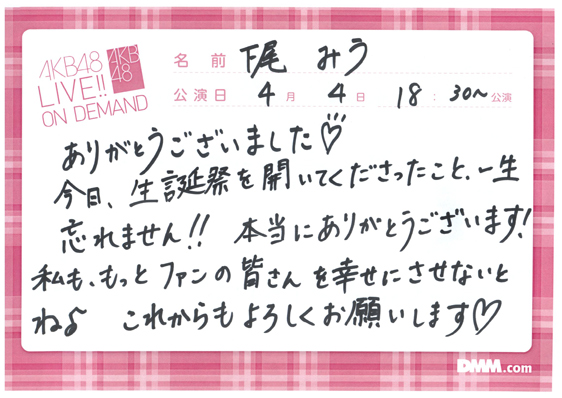 AKB48
LIVE!!
ON DEMAND
AKB
48
名前 下尾 みう
公演日 4月 4日 18:30~公演
ありがとうございました♡
今日、生誕祭を開いてくださったこと、一生
忘れません!! 本当にありがとうございます!
私も、もっとファンの皆さんを幸せにさせないと
ね♪ これからもよろしくお願いします♡
DMM.com